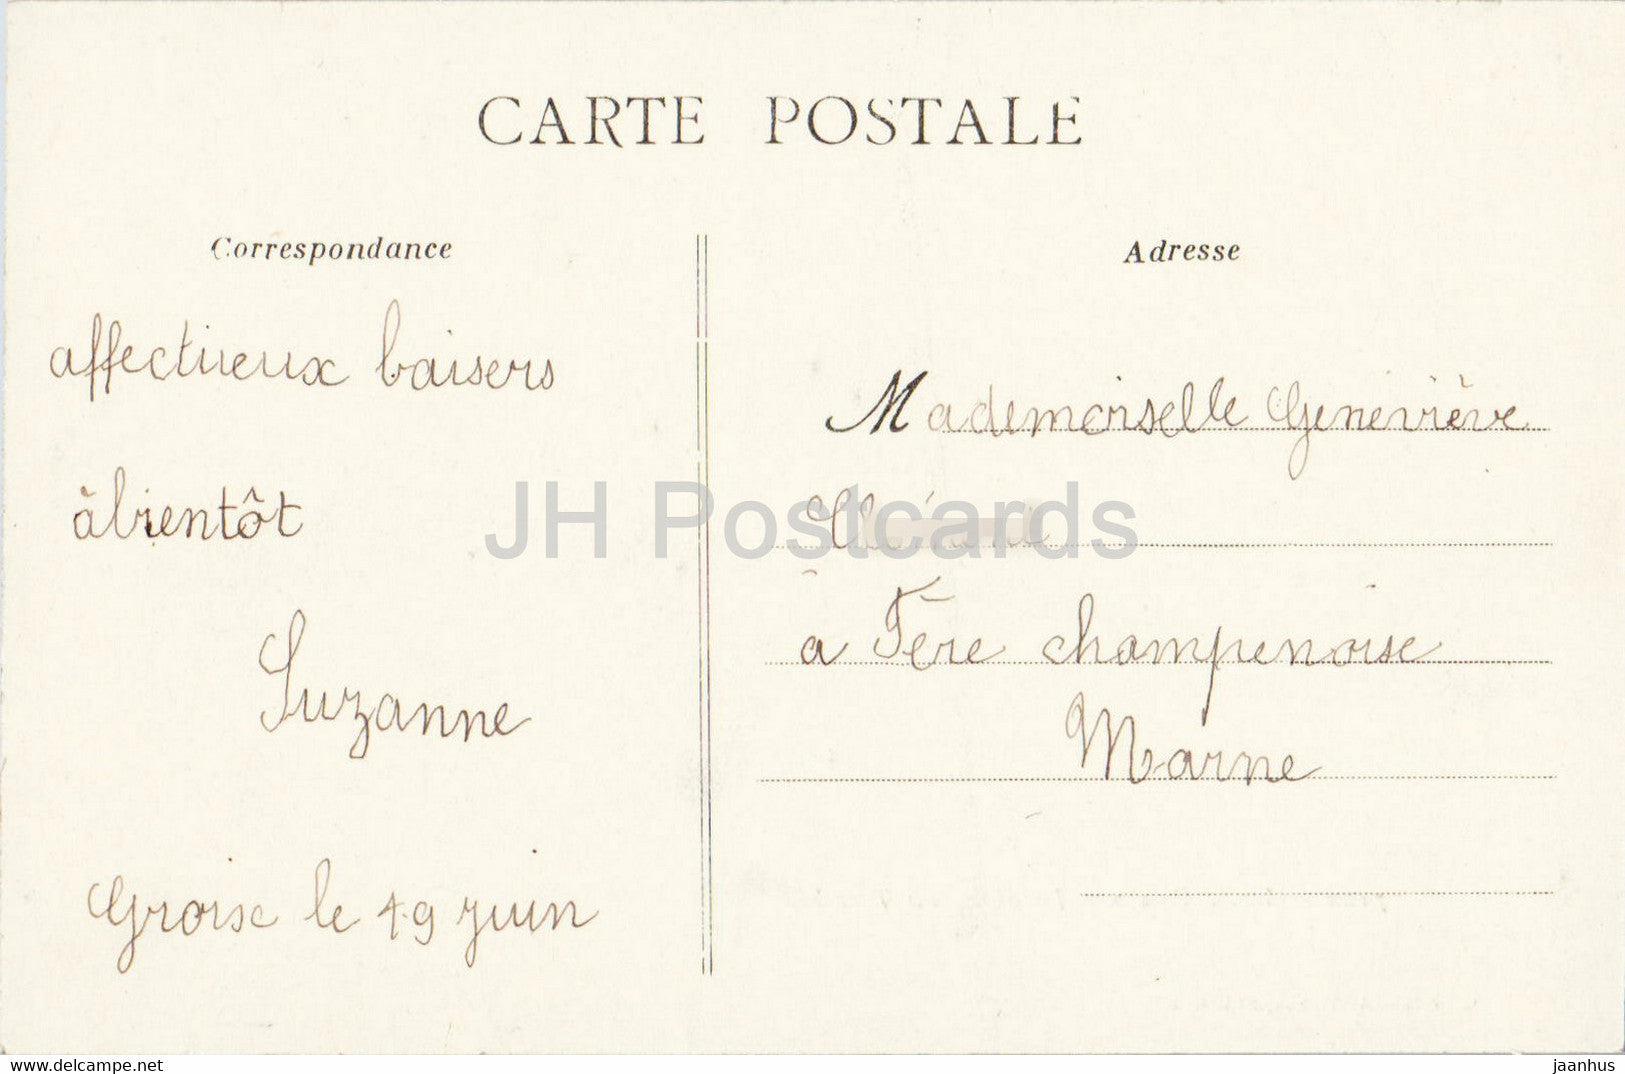 CARTE POSTALE
Correspondance
affectueux baisers
àbientôt
Suzanne
Groix le 19 juin
Adresse
Mademoiselle Geneviève
à Fère champenoise
Marne
JH Postcards
www.delcampe.net
jaanhus